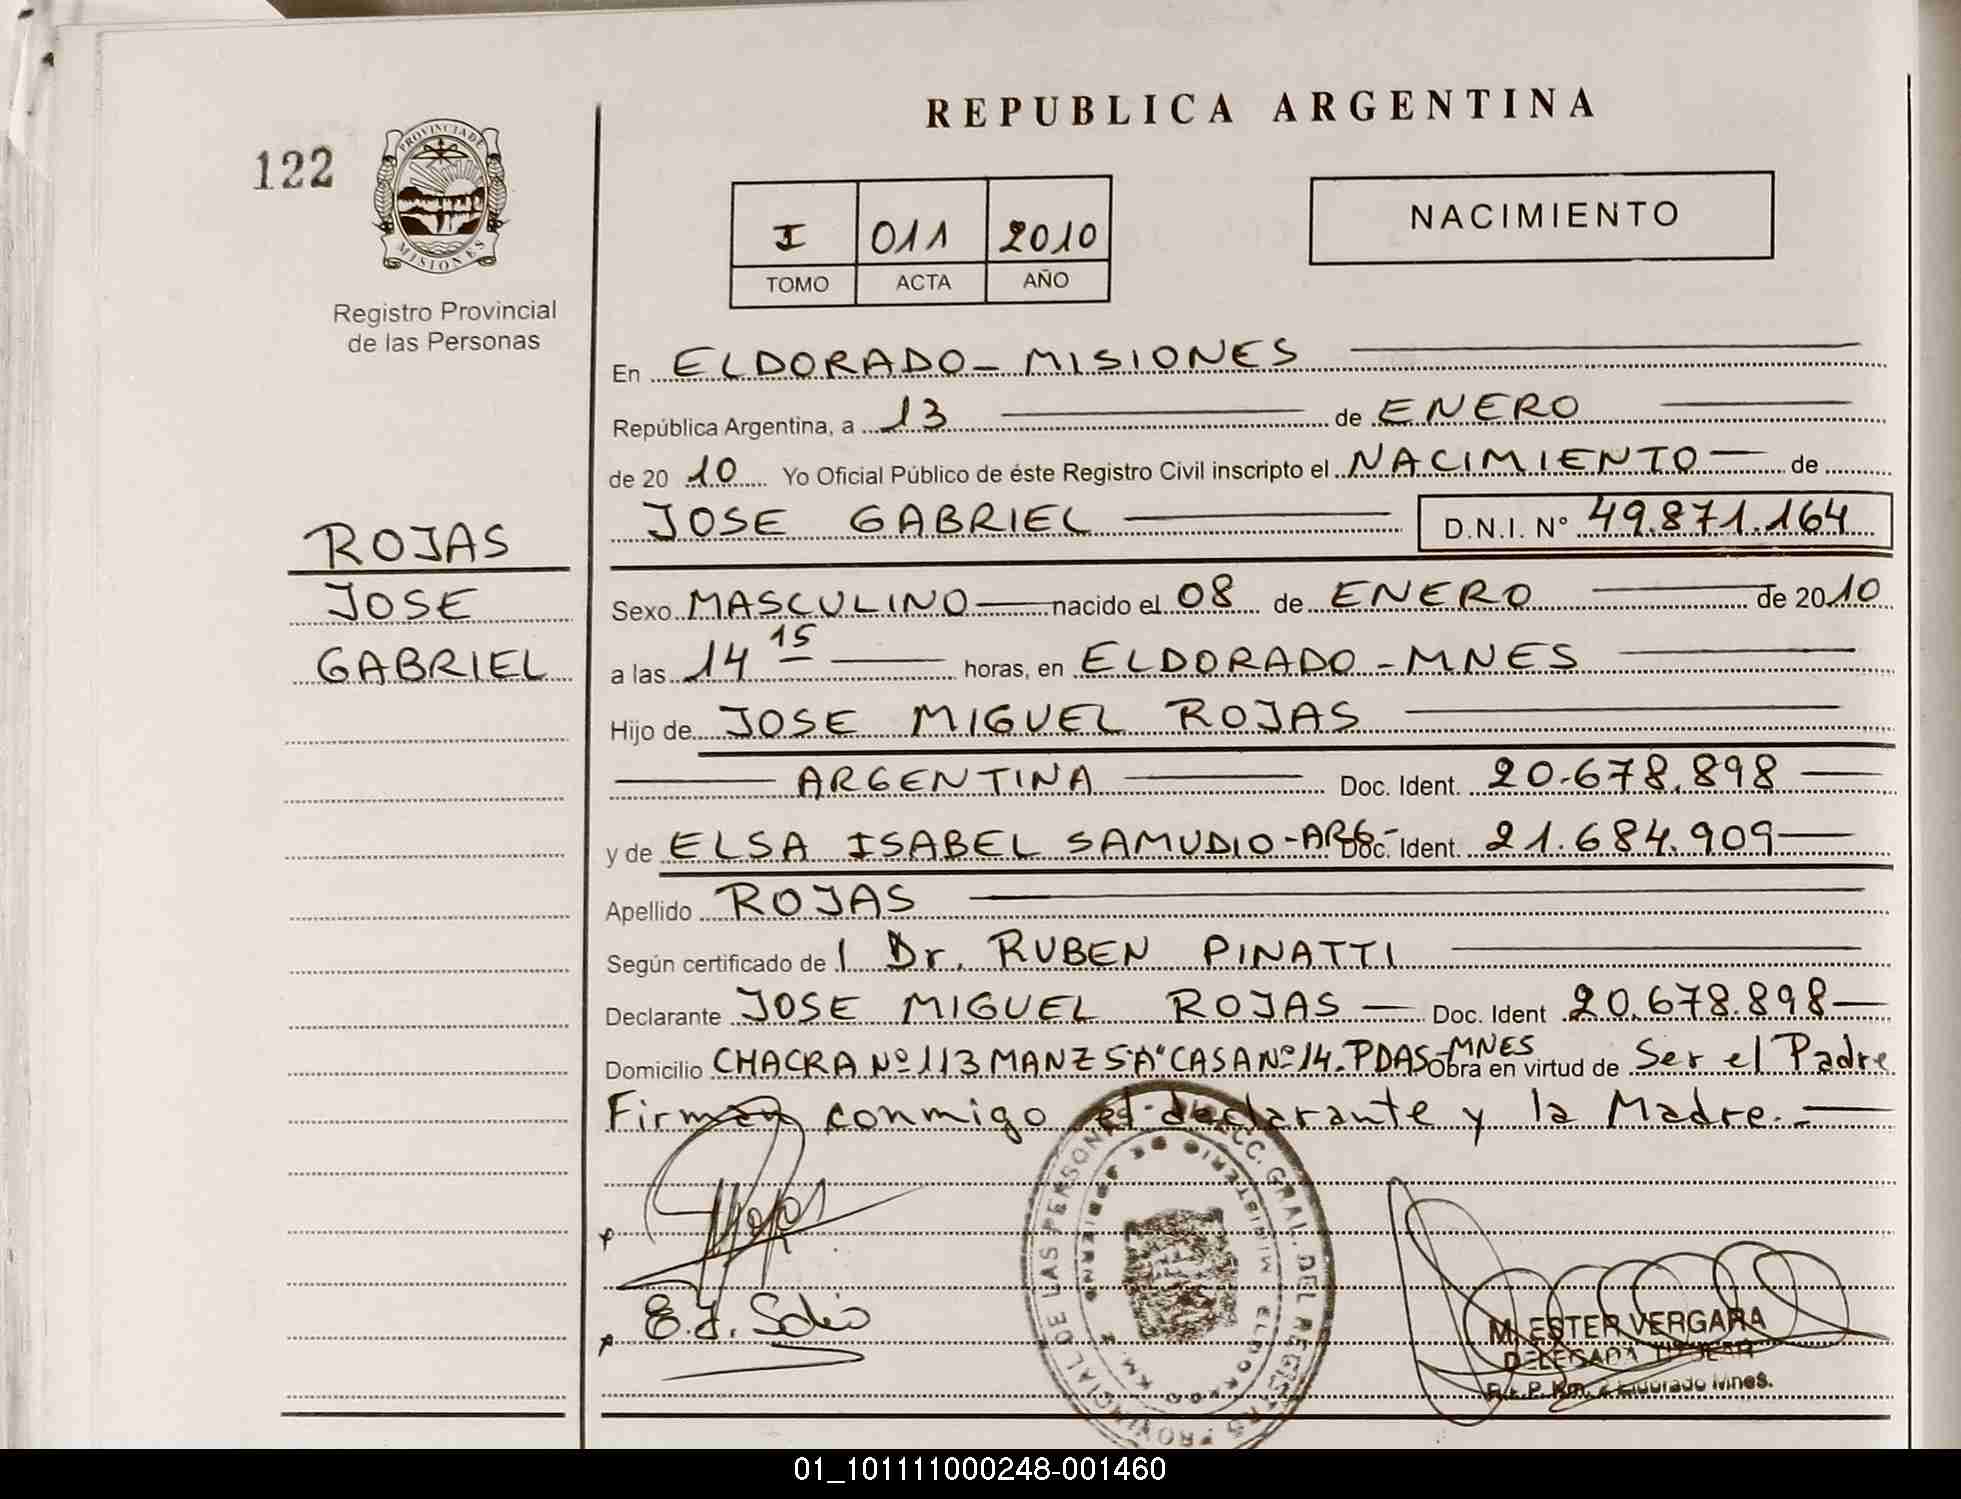 REPUBLICA ARGENTINA
122
PROVINCIA DE
MISIONES
Registro Provincial
de las Personas
I 011 2010
TOMO ACTA AÑO
NACIMIENTO
En ELDORADO - MISIONES
República Argentina, a 13 de ENERO
de 20 10 Yo Oficial Público de éste Registro Civil inscripto el NACIMIENTO de
JOSE GABRIEL D.N.I. N° 49.871.164
ROJAS
JOSE
GABRIEL
Sexo MASCULINO nacido el 08 de ENERO de 2010
a las 14 15 horas, en ELDORADO - MNES
Hijo de JOSE MIGUEL ROJAS
ARGENTINA Doc. Ident. 20.678.898
y de ELSA ISABEL SAMUDIO - ARG - Doc. Ident. 21.684.909
Apellido ROJAS
Según certificado de l Dr. RUBEN PINATTI
Declarante JOSE MIGUEL ROJAS Doc. Ident 20.678.898
Domicilio CHACRA Nº 113 MANZ 5"A" CASA Nº 14. PDAS - MNES Obra en virtud de Ser el Padre
Firman conmigo el declarante y la Madre. -
PROVINCIAL DE LAS PERSONAS DIRECC. GRAL. DEL REGISTRO
MINISTERIO DE GOBIERNO
ELDORADO KM. 2
Rojas
E. I.
M. ESTER VERGARA
DELEGADA TITULAR
R. P. P. Km. 2 Eldorado Mnes.
01_101111000248-001460